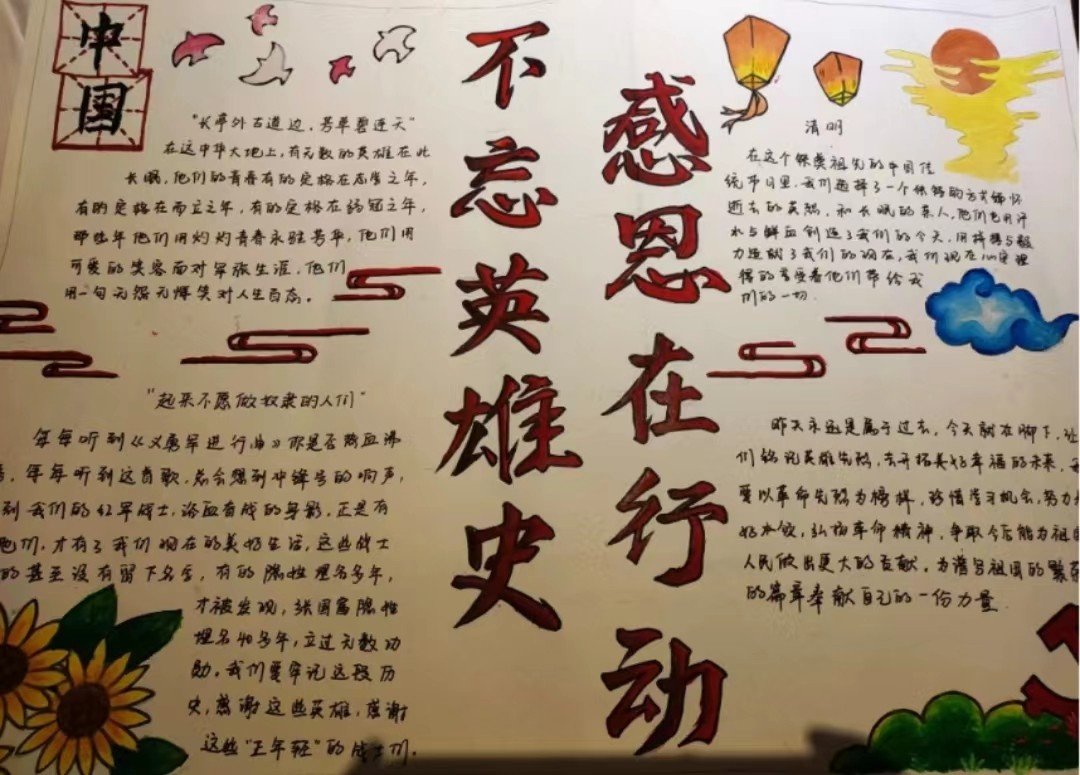 中国
不忘英雄史
感恩在行动
"长亭外古道边，芳草碧连天"
在这中华大地上，有无数的英雄在此
长眠，他们的青春有的定格在志学之年，
有的定格在而立之年，有的定格在弱冠之年，
那些年他们用灼灼青春永驻芳华，他们用
可爱的笑容面对军张生涯，他们
用一句无怨无悔笑对人生百态。
"起来不愿做奴隶的人们"
每每听到《义勇军进行曲》你是否热血沸
每每听到这首歌，总会想到冲锋号的响声，
到我们的红军战士，浴血奋战的身影，正是有
他们，才有了我们现在的美好生活，这些战士
的甚至没有留下名字，有的隐姓埋名多年，
才被发现，张国富隐姓
埋名40多年，立过无数功
勋，我们要牢记这段历
史，感谢这些英雄，感谢
这些"正年轻"的战士们．
清明
在这个祭奠祖先的中国传
统节日里，我们选择了一个特的方式缅怀
逝去的英，和长眠的亲人，他们也用汗
水与鲜血创造了我们的今天，用拼搏与毅
力造就了我们的现在，我们现在心安理
得的享受着他们带给我
们的一切．
昨天永远是属于过去，今天就在脚下，让
们铭记英雄先烈，去开拓美好幸福的未来，
要以革命先烈为榜样，珍惜学习机会，努力
好水，弘扬革命精神，争取今后能为祖国
人民做出更大的贡献，为谱写祖国的繁荣
的篇章奉献自己的一份力量．